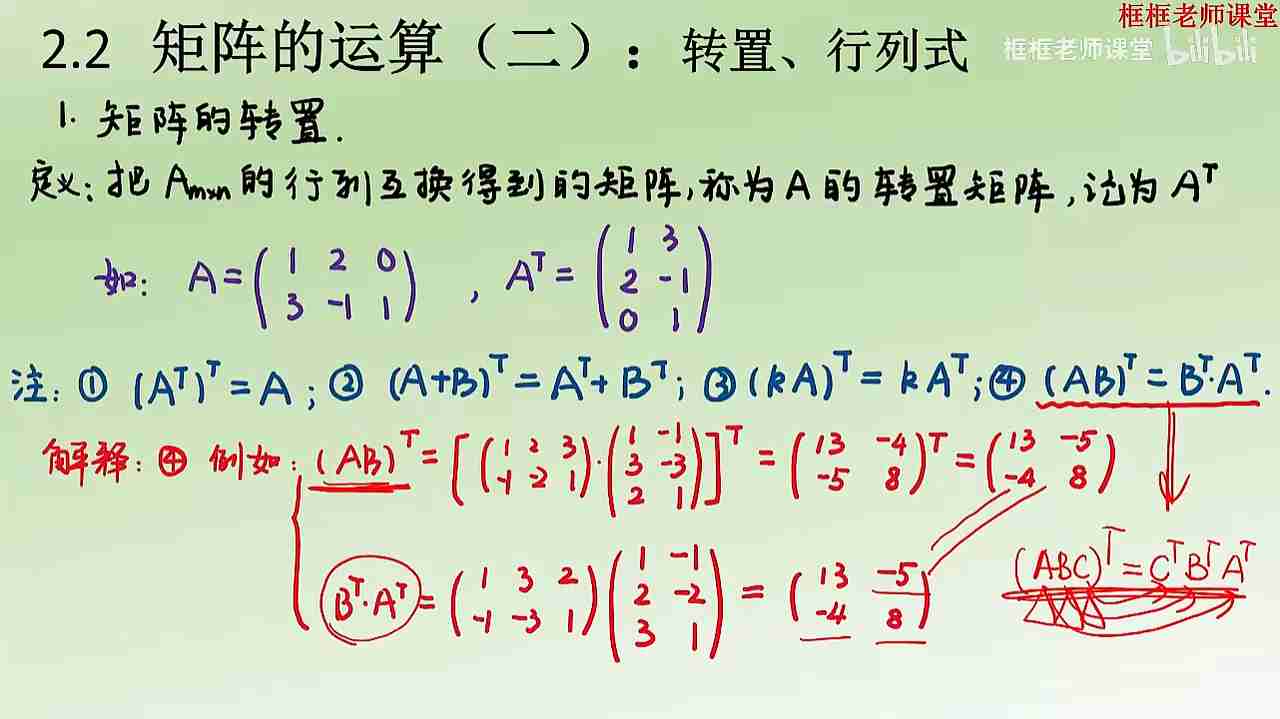 框框老师课堂
2.2 矩阵的运算（二）：转置、行列式
框框老师课堂 bilibili
1. 矩阵的转置.
定义: 把 Aₘₓₙ 的行列互换得到的矩阵, 称为 A 的转置矩阵, 记为 Aᵀ
如: A = (1 2 0; 3 -1 1), Aᵀ = (1 3; 2 -1; 0 1)
注: ① (Aᵀ)ᵀ = A; ② (A+B)ᵀ = Aᵀ + Bᵀ; ③ (kA)ᵀ = kAᵀ; ④ (AB)ᵀ = Bᵀ·Aᵀ.
解释: ④ 例如: (AB)ᵀ = [(1 2 3; -1 -2 1)·(1 -1; 3 -3; 2 1)]ᵀ = (13 -4; -5 8)ᵀ = (13 -5; -4 8)
Bᵀ·Aᵀ = (1 3 2; -1 -3 1)(1 -1; 2 -2; 3 1) = (13 -5; -4 8)
(ABC)ᵀ = CᵀBᵀAᵀ